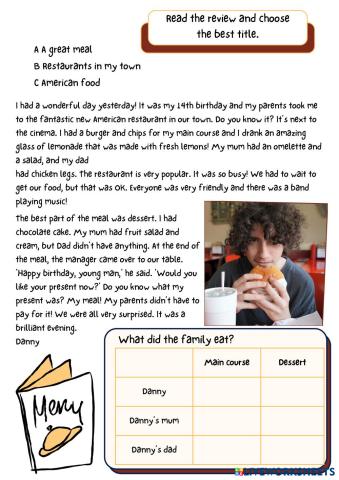 Read the review and choose
the best title.
A A great meal
B Restaurants in my town
C American food
I had a wonderful day yesterday! It was my 14th birthday and my parents took me
to the fantastic new American restaurant in our town. Do you know it? It's next to
the cinema. I had a burger and chips for my main course and I drank an amazing
glass of lemonade that was made with fresh lemons! My mum had an omelette and
a salad, and my dad
had chicken legs. The restaurant is very popular. It was so busy! We had to wait to
get our food, but that was OK. Everyone was very friendly and there was a band
playing music!
The best part of the meal was dessert. I had
chocolate cake. My mum had fruit salad and
cream, but Dad didn't have anything. At the end of
the meal, the manager came over to our table.
'Happy birthday, young man,' he said. 'Would you
like your present now?' Do you know what my
present was? My meal! My parents didn't have to
pay for it! We were all very surprised. It was a
brilliant evening.
Danny
What did the family eat?
Main course Dessert
Danny
Danny's mum
Danny's dad
Menu
LIVEWORKSHEETS